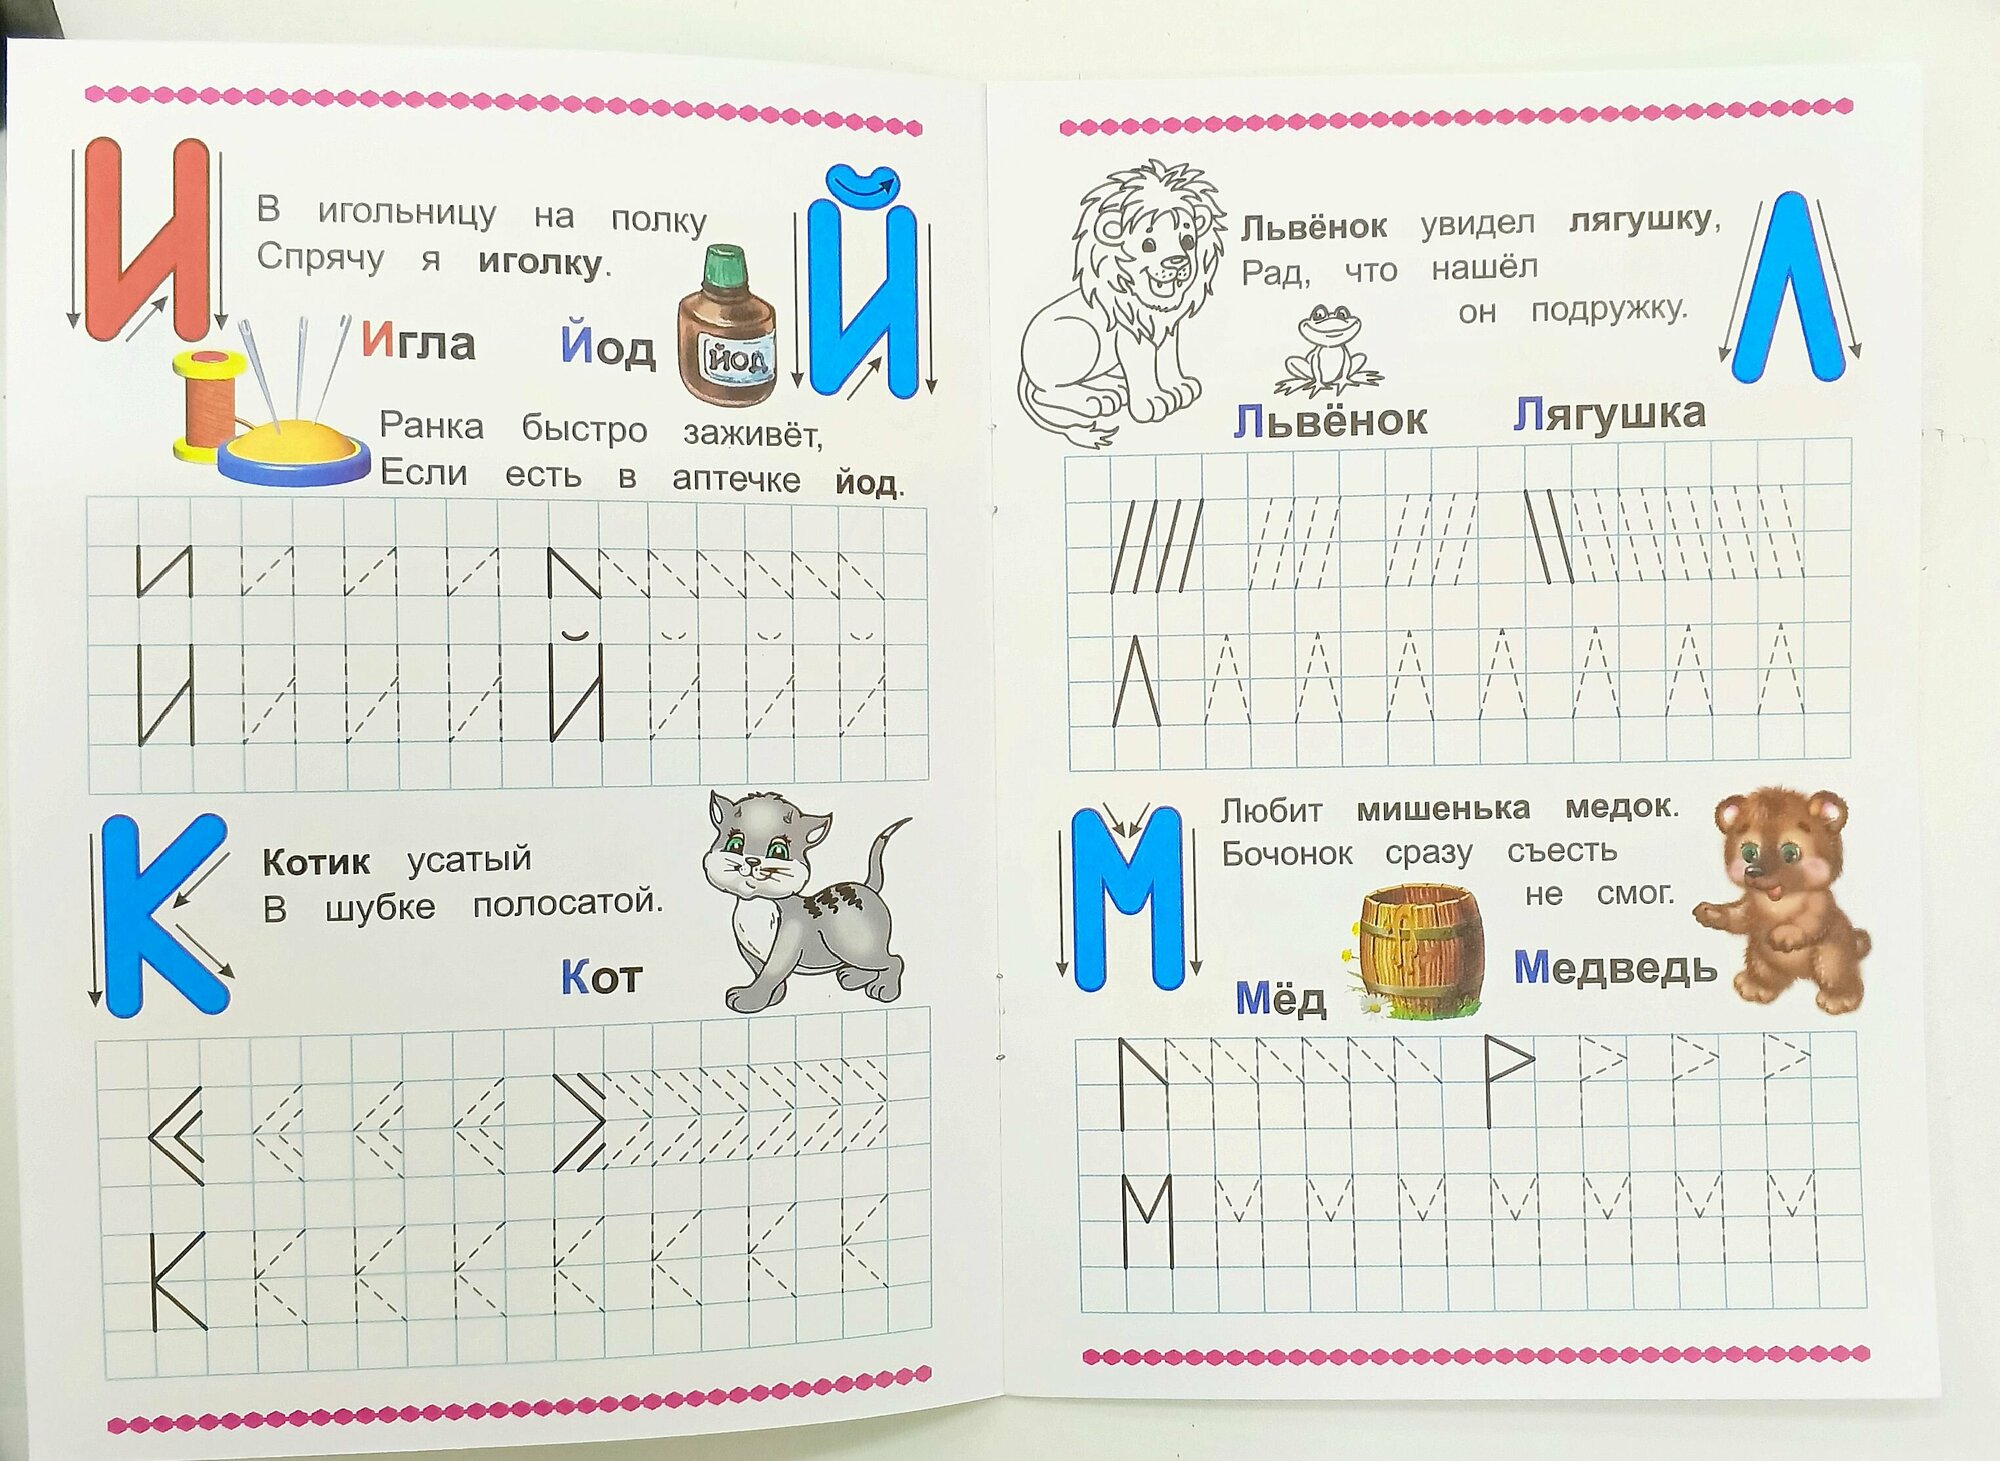 И
В игольницу на полку
Спрячу я иголку.
Игла
Йод
йод
Й
Ранка быстро заживёт,
Если есть в аптечке йод.
И И И И
И И И И Й Й Й Й
К
Котик усатый
В шубке полосатой.
Кот
К К К К К К К К
Львёнок увидел лягушку,
Рад, что нашёл
он подружку.
Л
Львёнок
Лягушка
Л Л Л Л Л Л Л Л
М
Любит мишенька медок.
Бочонок сразу съесть
не смог.
Мёд
Медведь
М М М М М М М М